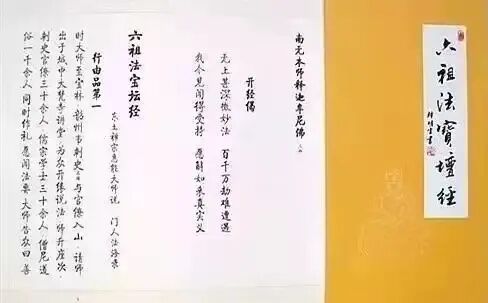 六祖法寶壇經
南无本师释迦牟尼佛
开经偈
无上甚深微妙法 百千万劫难遭遇
我今见闻得受持 愿解如来真实义
六祖法宝坛经
东土禅宗惠能大师说 门人法海录
行由品第一
时大师至宝林 韶州韦刺史 与官僚入山 请师
出于城中大梵寺讲堂 为众开缘说法 师升座次
刺史官僚三十余人 儒宗学士三十余人 僧尼道
俗一千余人 同时作礼 愿闻法要 大师告众曰 善